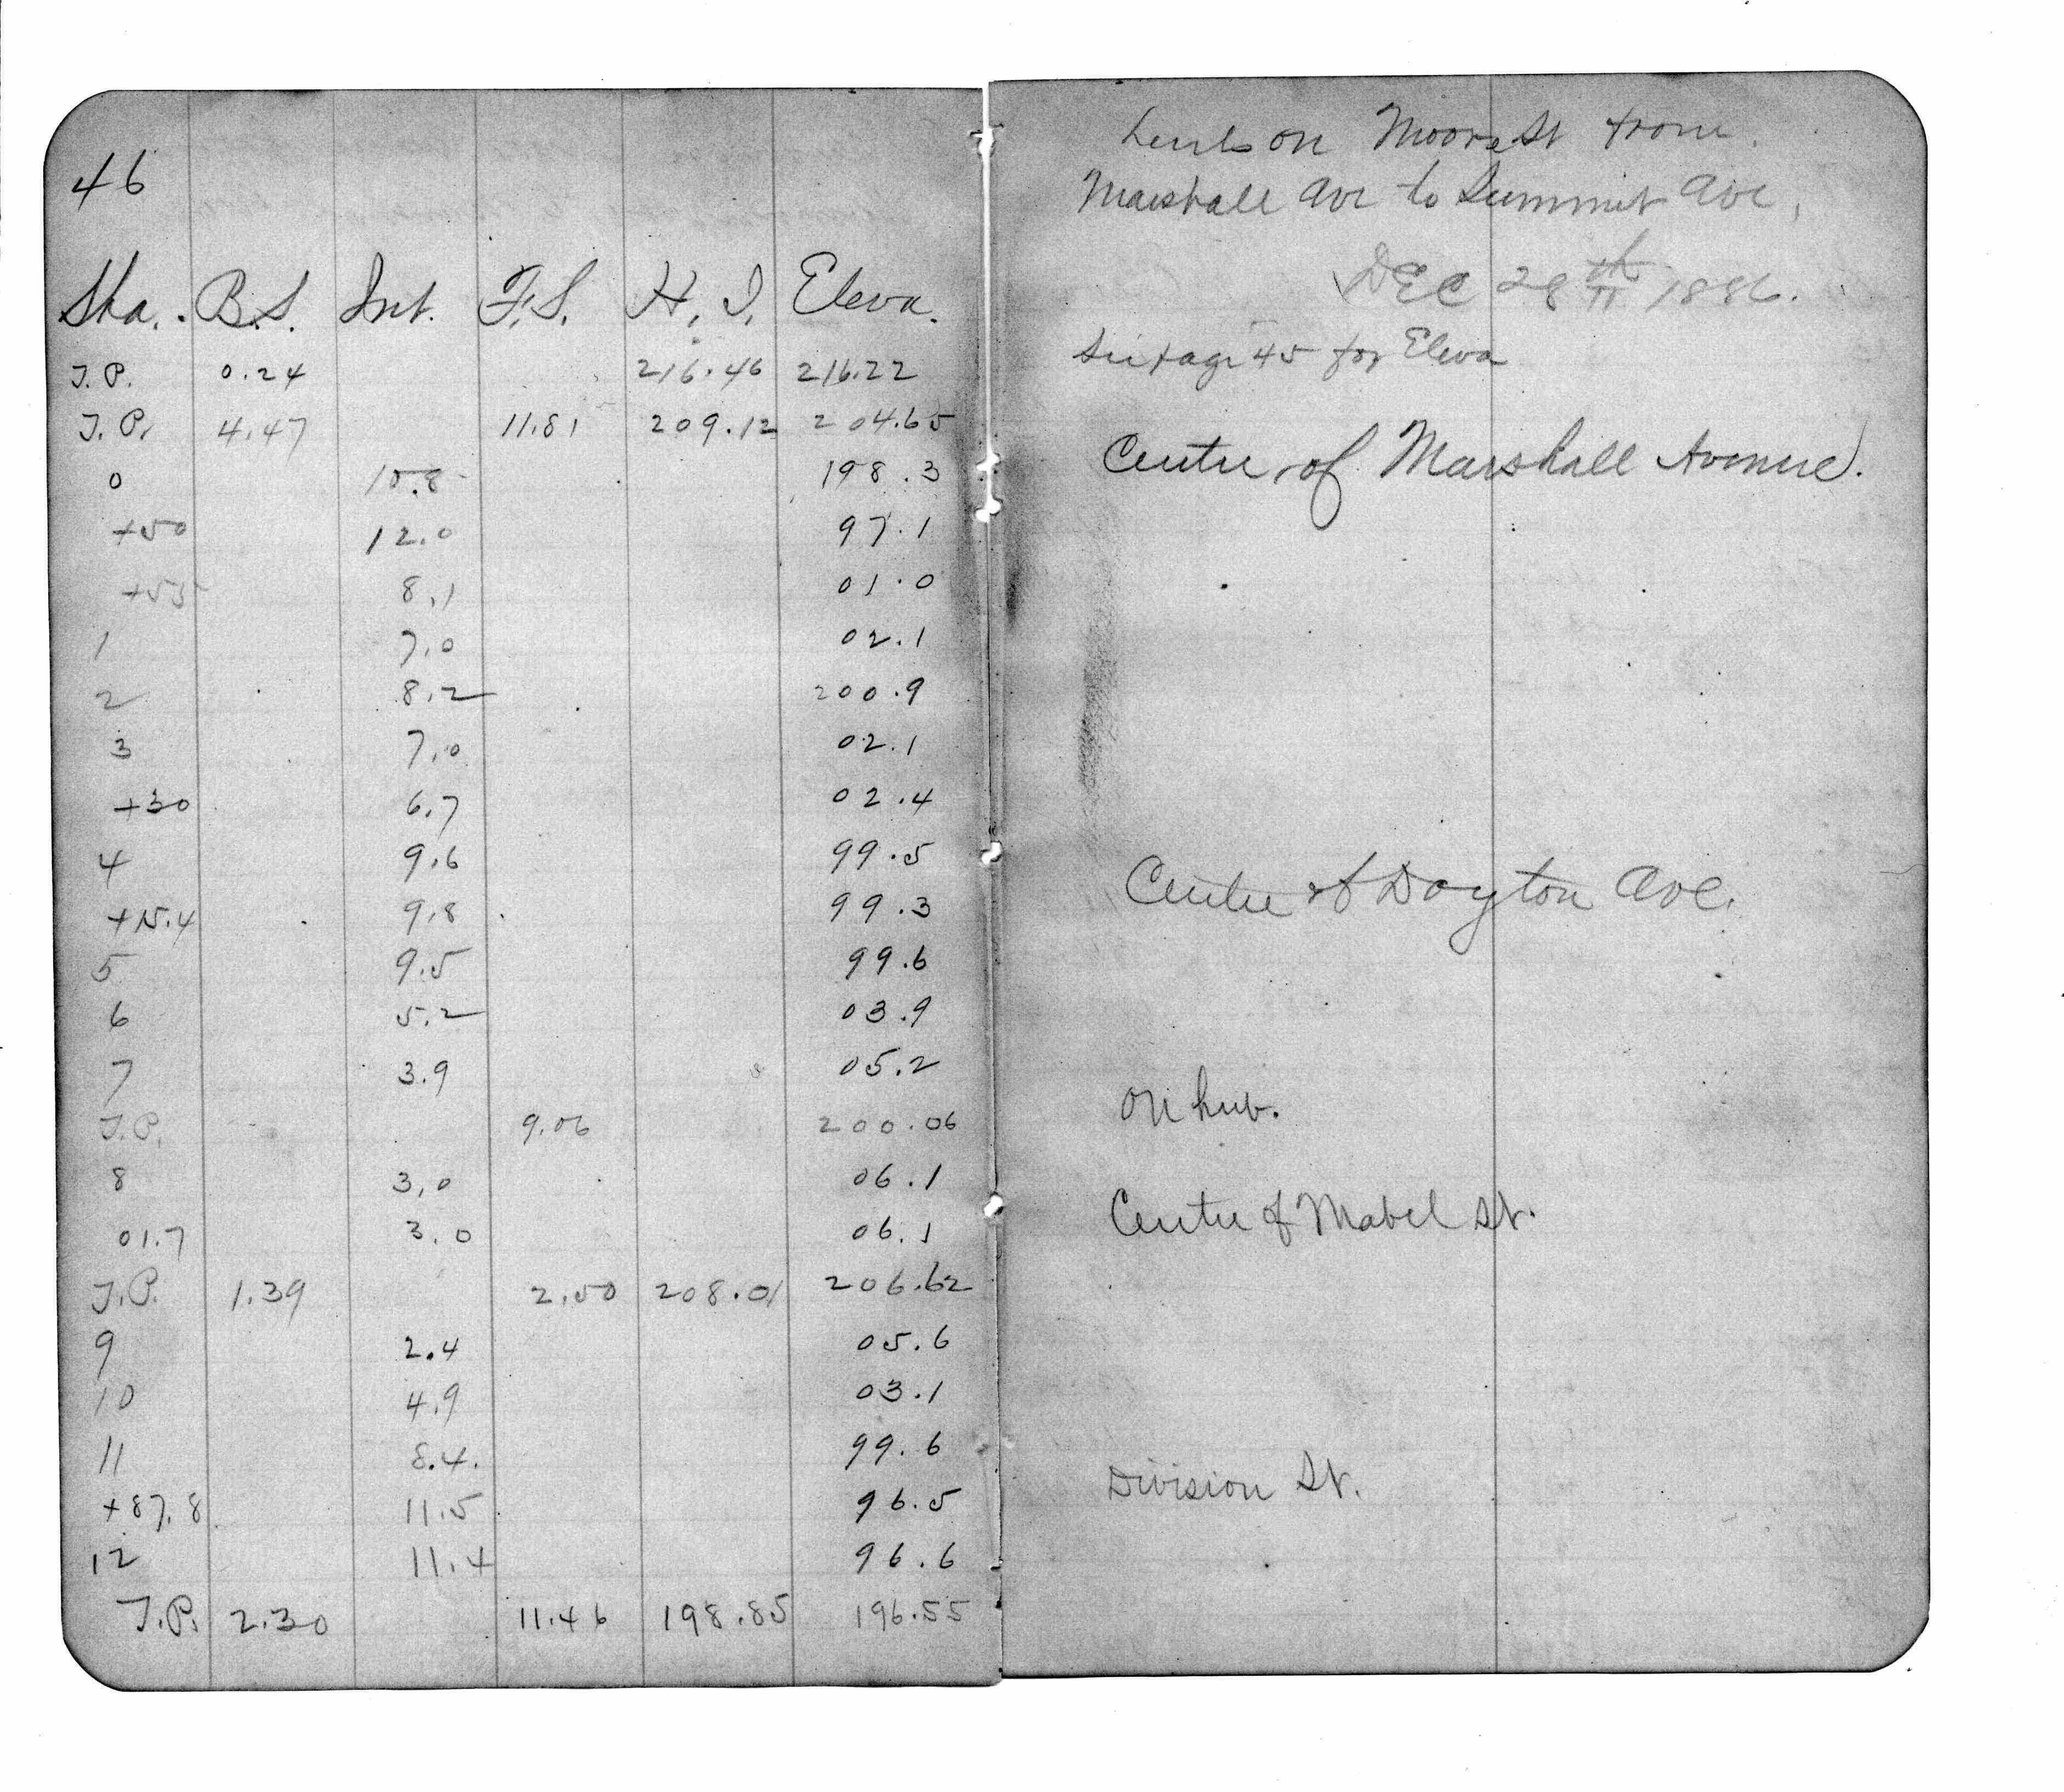 46
Sta. B.S. Int. F.S. H.I. Eleva.
T.P. 0.24 216.46 216.22
T.P. 4.47 11.81 209.12 204.65
0 10.8 198.3
+50 12.0 97.1
+55 8.1 01.0
1 7.0 02.1
2 8.2 200.9
3 7.0 02.1
+30 6.7 02.4
4 9.6 99.5
+15.4 9.8 99.3
5 9.5 99.6
6 5.2 03.9
7 3.9 05.2
T.P. 9.06 200.06
8 3.0 06.1
01.7 3.0 06.1
T.P. 1.39 2.50 208.01 206.62
9 2.4 05.6
10 4.9 03.1
11 8.4. 99.6
+87.8 11.5 96.5
12 11.4 96.6
T.P. 2.30 11.46 198.85 196.55
Levels on Moore St from
Marshall Ave to Summit Ave,
DEC 28th 1886.
See page 45 for Eleva
Centre of Marshall Avenue.
Centre of Dayton Ave.
on hub.
Centre of Mabel St.
Division St.